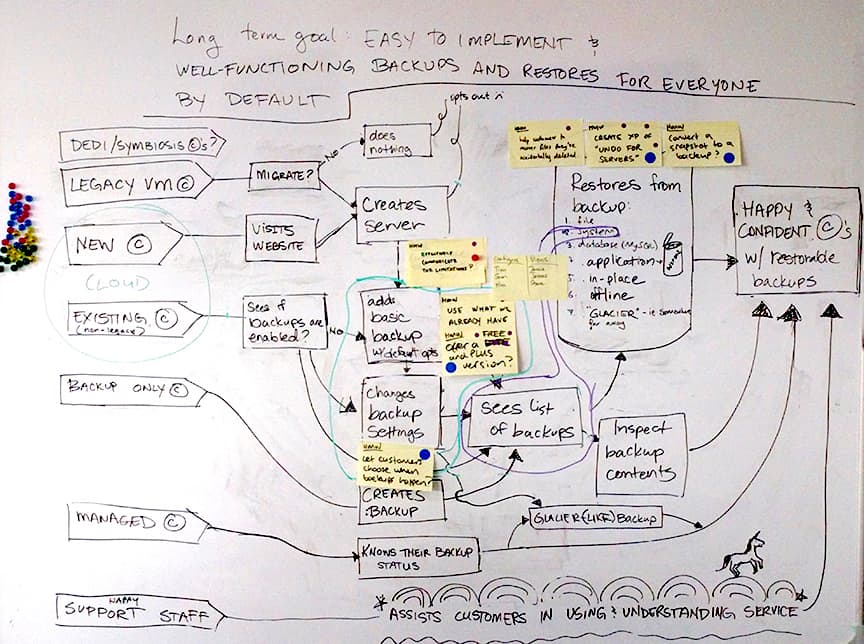 Long term goal: EASY TO IMPLEMENT &
WELL-FUNCTIONING BACKUPS AND RESTORES FOR EVERYONE
BY DEFAULT
opts out
DEDI/SYMBIOSIS ©'s?
does
nothing
NO
LEGACY VM ©
MIGRATE?
Creates
server
NEW ©
VISITS
WEBSITE
CLOUD
EXISTING ©
(non-legacy)
Sees if
backups are
enabled?
NO
adds
basic
backup
w/default opts
HMW
EFFECTIVELY
COMMUNICATE
THE LIMITATIONS?
HMW
USE WHAT WE
ALREADY HAVE
HMW FREE
offer a
and PLUS
version?
HMW
help customer to
recover files they've
accidentally deleted
HMW
CREATE XP OF
"UNDO FOR
SERVERS"
HMW
convert a
snapshot to a
backup?
Restores from
backup:
1. file
2. system
3. database (MySQL)
application
in-place
6. offline
7. "GLACIER" - ie somewhere
far away
HAPPY &
CONFIDENT ©'s
w/ restorable
backups
BACKUP ONLY ©
Changes
backup
settings
sees list
of backups
Inspect
backup
contents
HMW
let customers
choose when
backups happen?
CREATES
BACKUP
GLACIER(LIKE) Backup
MANAGED ©
KNOWS THEIR BACKUP
STATUS
HAPPY
SUPPORT STAFF
ASSISTS CUSTOMERS IN USING & UNDERSTANDING SERVICE